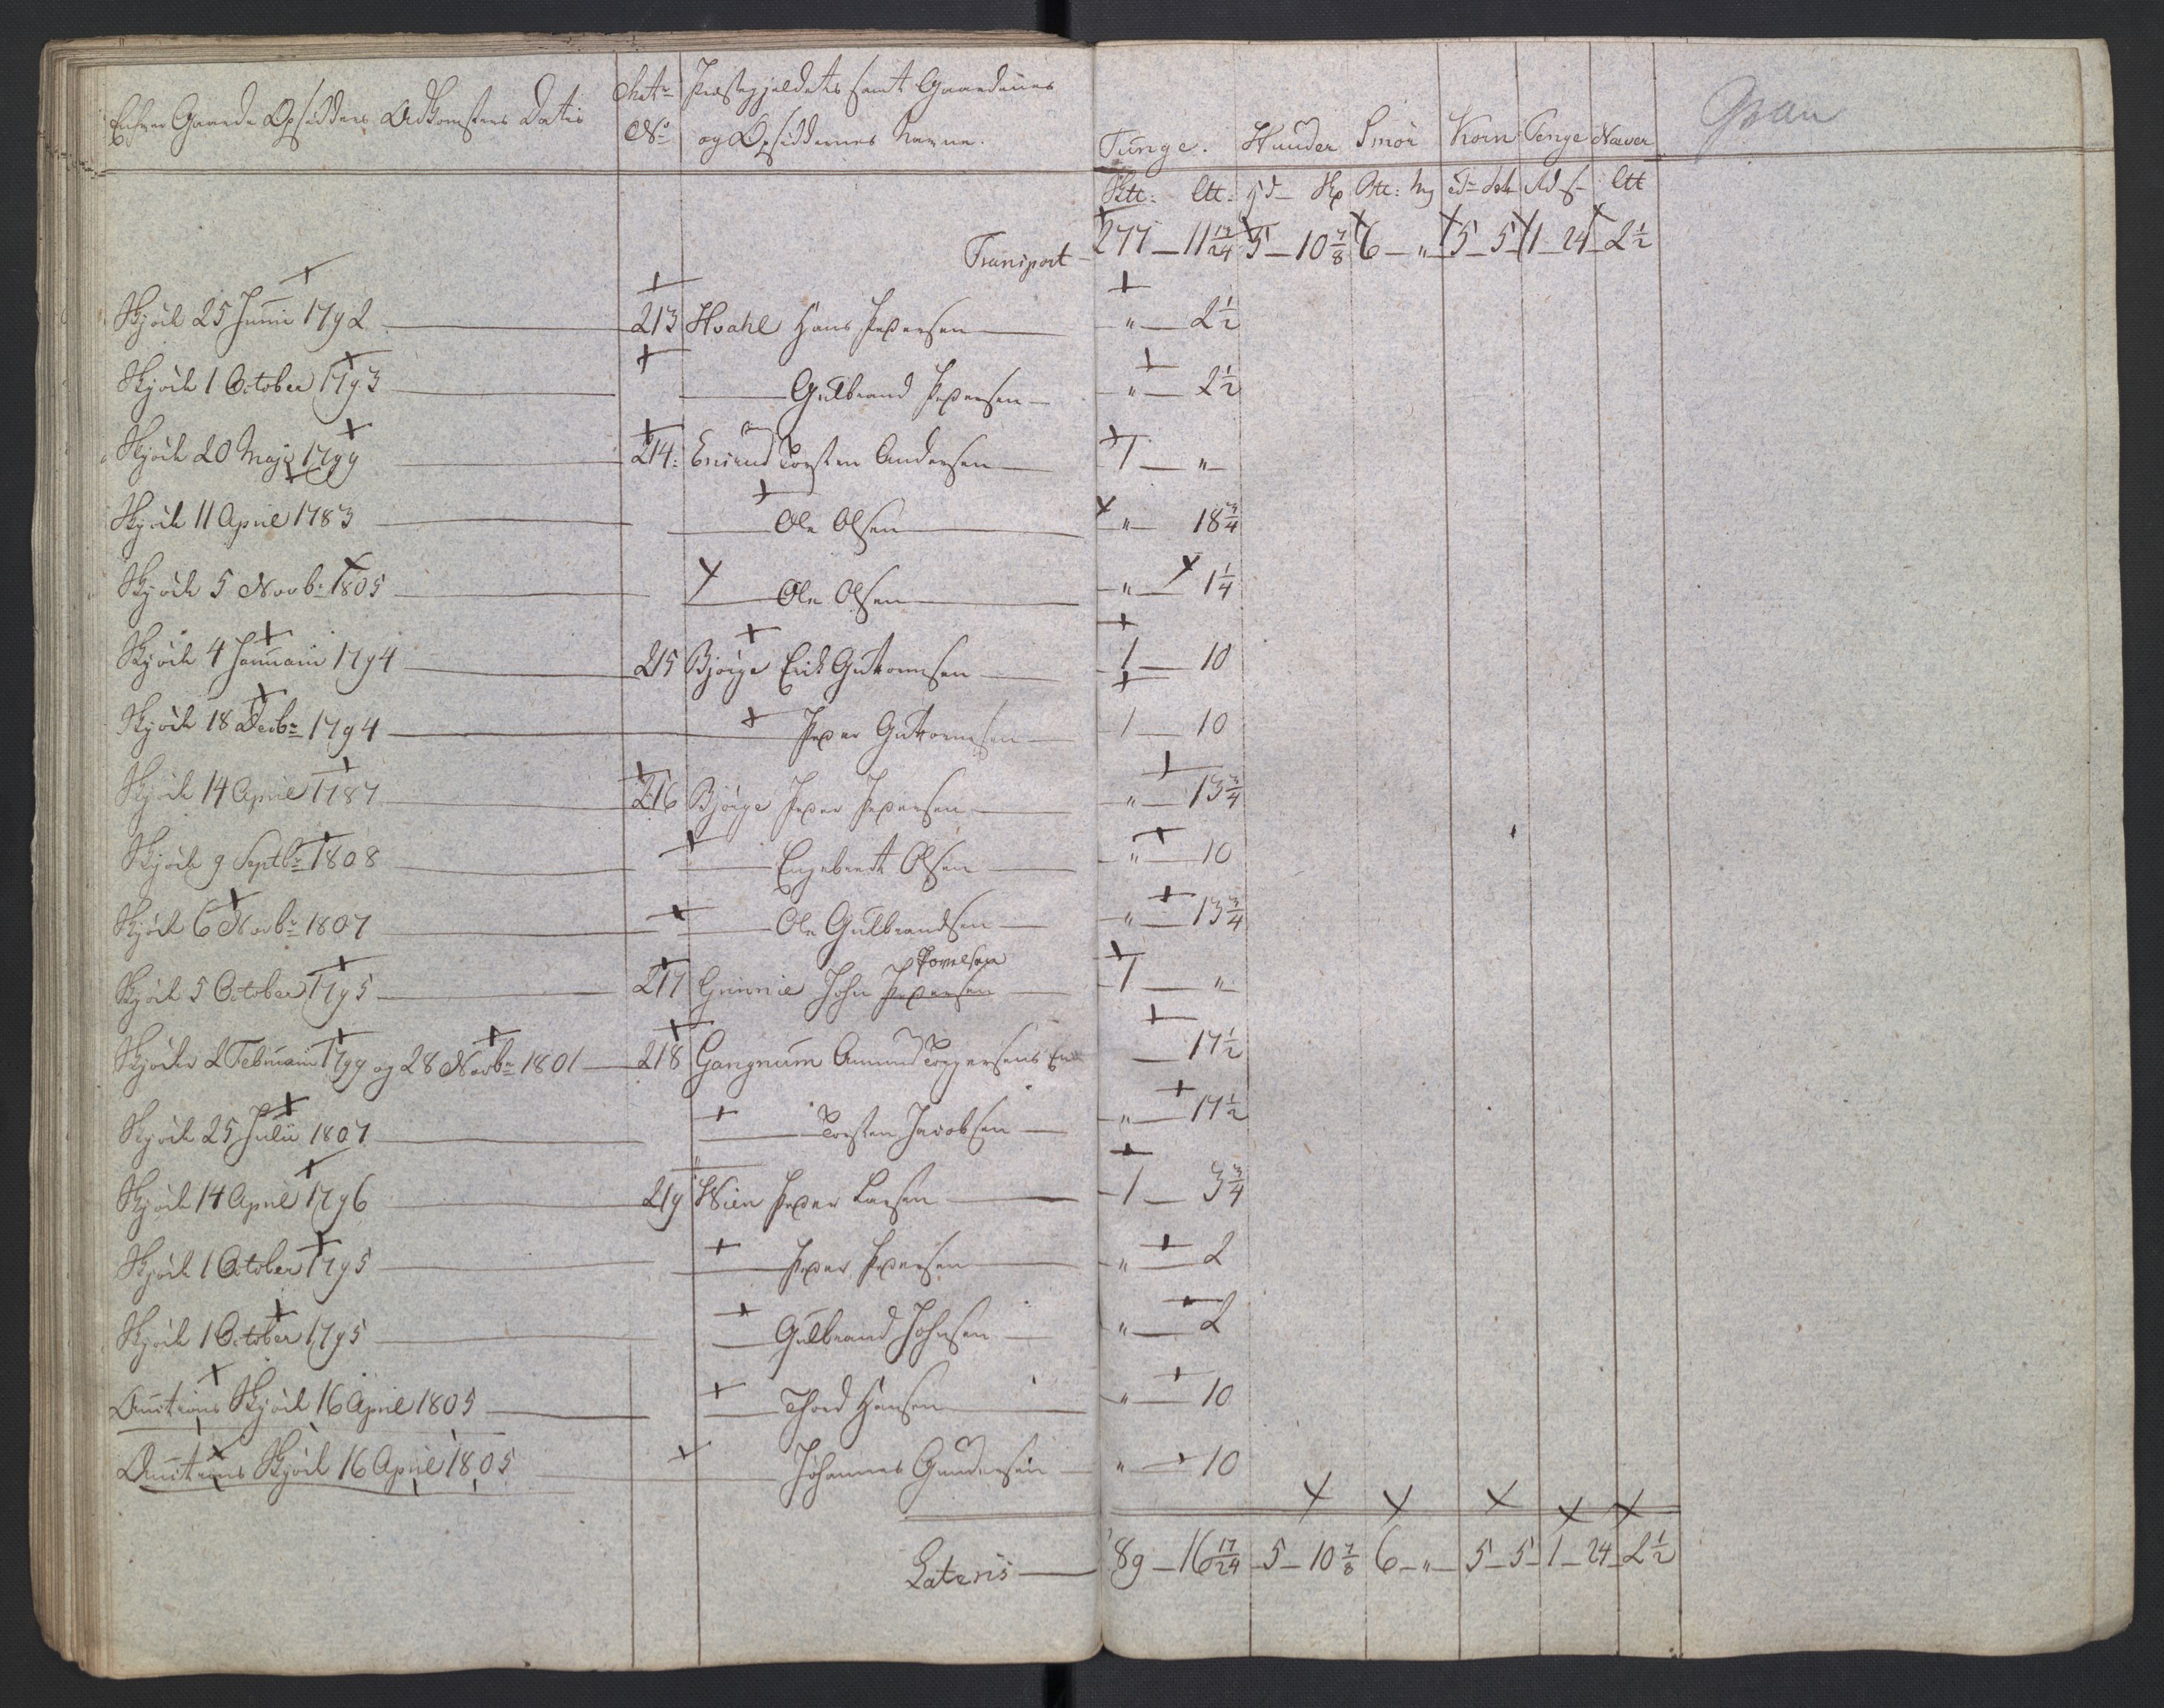 Enhver Gaards Opsidders Adkomsters Datis | Matr No | Præstegjeldets samt Gaardenes og Opsiddernes Navne. | Tunge. | Huuder | Smör | Korn | Penge | Næver
Gran
Sktt: Ltt: | Hd Sk | Btt: | Td | Rd s | Ltt
Transport 277 — 11 19/24 | 5 — 10 7/8 | 6 — „ | 5 — 5 | 1 — 24 | 2 1/2
Skjöde 25 Junii 1792 — 213 Hvahl Hans Pedersen — „ — 2 1/2
Skjöde 1 October 1793 — Gulbrand Pedersen — „ — 2 1/2
Skjöde 20 Maji 1799 — 214: Torsten Andersen — 1 — „
Skjöde 11 April 1783 — Ole Olsen — „ — 18 3/4
Skjöde 5 Novbr 1805 — Ole Olsen — „ — 1 1/4
Skjöde 4 Januarii 1794 — 215 Bjöige Erik Guttormsen — 1 — 10
Skjöde 18 Decbr 1794 — Peder Guttormsen — 1 — 10
Skjöde 14 April 1787 — 216 Bjöige Peder Pedersen — „ — 13 3/4
Skjöde 9 Septbr 1808 — Engebreth Olsen — „ — 10
Skjöde 6 Novbr 1807 — Ole Gulbrandsen — „ — 13 3/4
Povelsen
Skjöde 5 October 1795 — 217 Grinnie John Pedersen — 1 — „
Skjöder 2 Februarii 1799 og 28 Novbr 1801 — 218 Gangnum Amund Torgersens En — 17 1/2
Skjöde 25 Julii 1807 — Torsten Jacobsen — „ — 17 1/2
Skjöde 14 April 1796 — 219 Hvien Peder Larsen — 1 — 3 3/4
Skjöde 1 October 1795 — Peder Pedersen — „ — 2
Skjöde 1 October 1795 — Gulbrand Johnsen — „ — 2
Auctions Skjöde 16 April 1805 — Thord Hansen — „ — 10
Auctions Skjöde 16 April 1805 — Johannes Gundersen — „ — 10
Lateris — 89 — 16 17/24 | 5 — 10 7/8 | 6 — „ | 5 — 5 | 1 — 24 | 2 1/2